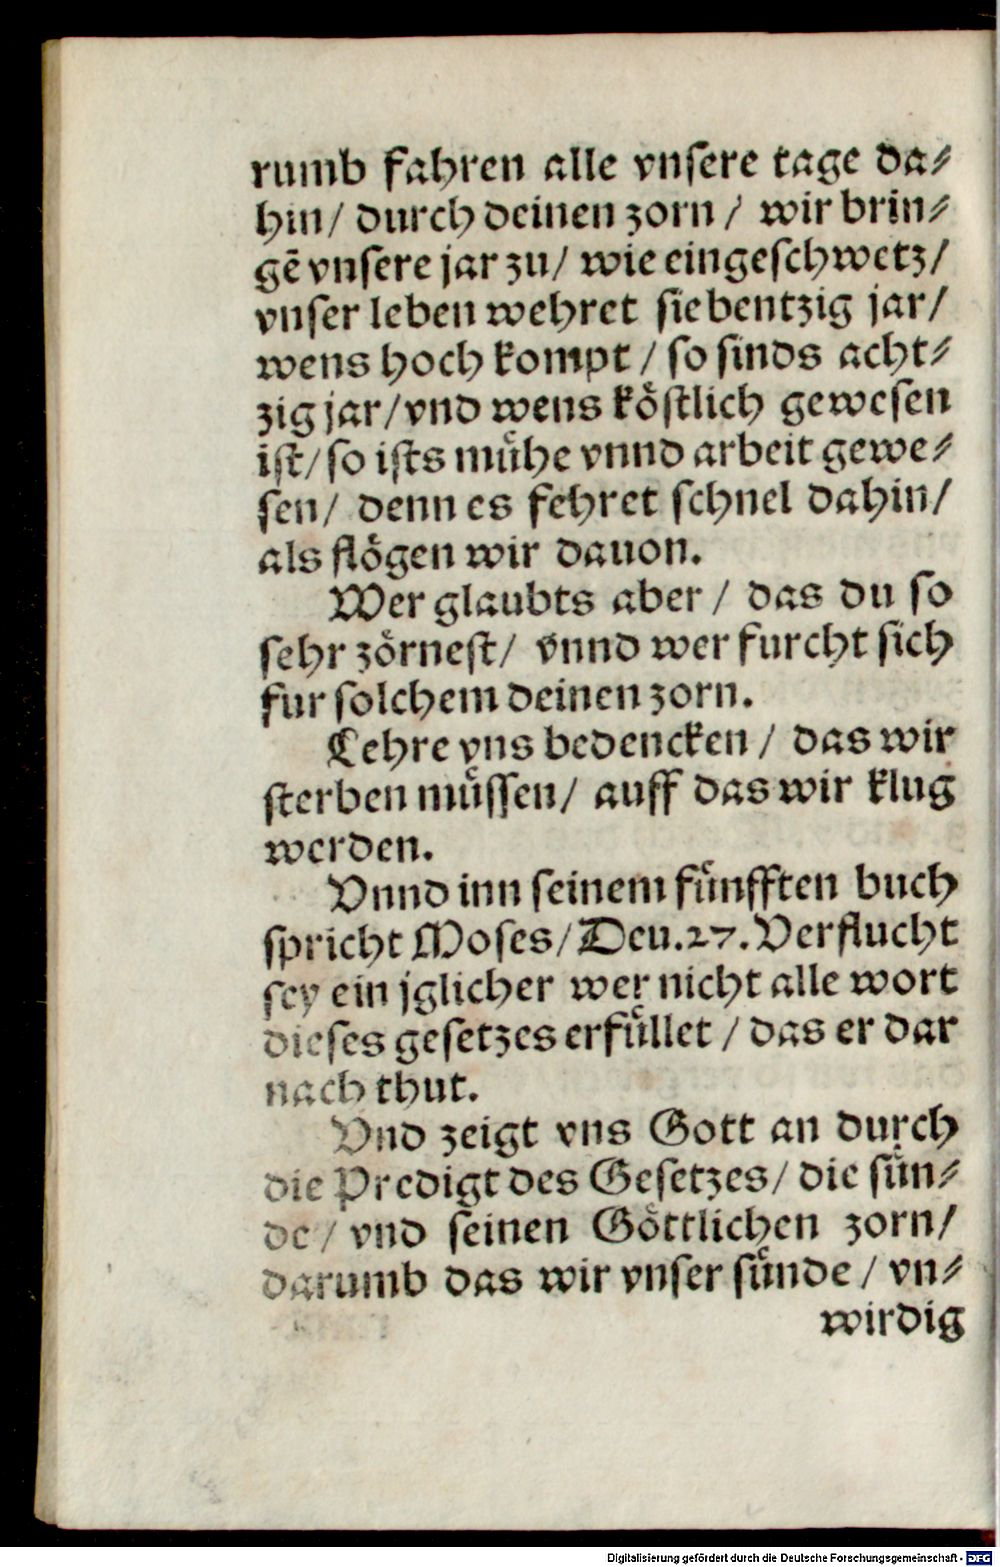 rumb fahren alle vnſere tage da⸗
hin/ durch deinen zorn / wir brin⸗
gē vnſere jar zu/ wie ein geſchwetz/
vnſer leben wehret ſiebentzig jar/
wens hoch kompt / ſo ſinds acht⸗
zig jar/vnd wens koͤſtlich geweſen
iſt/ſo iſts muͤhe vnnd arbeit gewe⸗
ſen/ denn es fehret ſchnel dahin/
als floͤgen wir dauon.
Wer glaubts aber / das du ſo
ſehr zoͤrneſt/ vnnd wer furcht ſich
fur ſolchem deinen zorn.
Lehre vns bedencken / das wir
ſterben muͤſſen/ auff das wir klug
werden.
Vnnd inn ſeinem fuͤnfften buch
ſpricht Moſes/Deu.27.Verflucht
ſey ein jglicher wer nicht alle wort
dieſes geſetzes erfuͤllet / das er dar
nach thut.
Vnd zeigt vns Gott an durch
die Predigt des Geſetzes/ die ſuͤn⸗
de/ vnd ſeinen Goͤttlichen zorn/
darumb das wir vnſer ſuͤnde / vn⸗
wirdig
Digitalisierung gefördert durch die Deutsche Forschungsgemeinschaft - DFG